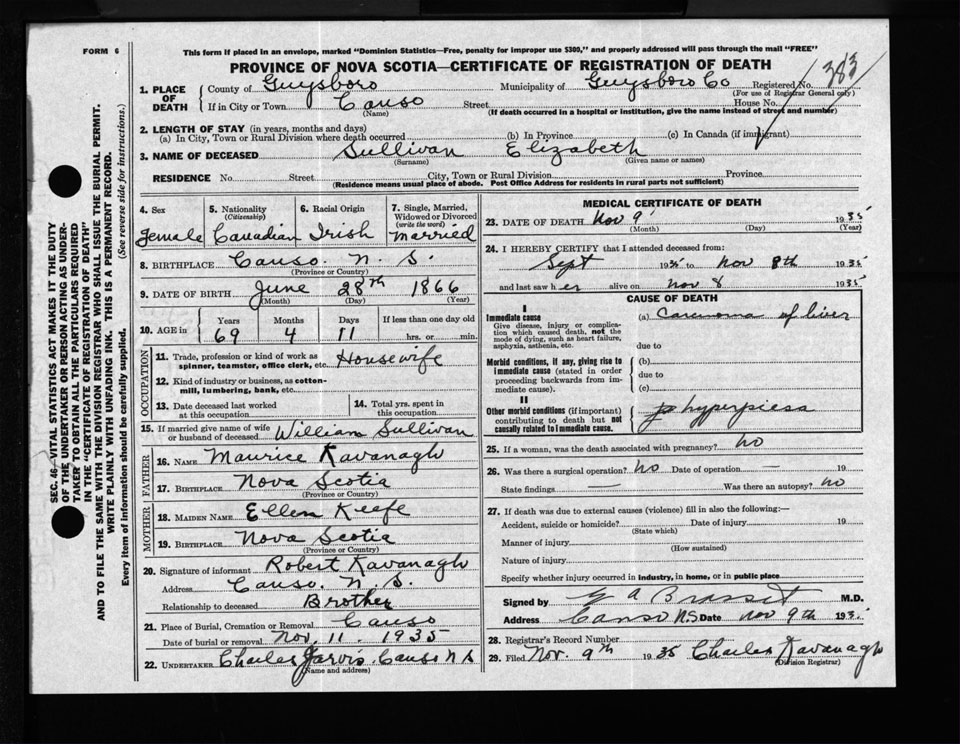 FORM 6
This form if placed in an envelope, marked "Dominion Statistics—Free, penalty for improper use $300," and properly addressed will pass through the mail "FREE"
PROVINCE OF NOVA SCOTIA—CERTIFICATE OF REGISTRATION OF DEATH
1. PLACE OF DEATH
County of Guysboro Municipality of Guysboro Co Registered No. 383
(For use of Registrar General only)
If in City or Town Canso Street House No.
(Name) (If death occurred in a hospital or institution, give the name instead of street and number)
2. LENGTH OF STAY (in years, months and days)
(a) In City, Town or Rural Division where death occurred (b) In Province (c) In Canada (if immigrant)
3. NAME OF DECEASED Sullivan Elizabeth
(Surname) (Given name or names)
RESIDENCE No. Street City, Town or Rural Division Province
(Residence means usual place of abode. Post Office Address for residents in rural parts not sufficient)
4. Sex Female
5. Nationality (Citizenship) Canadian
6. Racial Origin Irish
7. Single, Married, Widowed or Divorced (write the word) Married
8. BIRTHPLACE Canso. N. S.
(Province or Country)
9. DATE OF BIRTH June 28th 1866
(Month) (Day) (Year)
10. AGE in Years Months Days If less than one day old
69 4 11 hrs. or min.
OCCUPATION
11. Trade, profession or kind of work as spinner, teamster, office clerk, etc. Housewife
12. Kind of industry or business, as cotton-mill, lumbering, bank, etc.
13. Date deceased last worked at this occupation
14. Total yrs. spent in this occupation
15. If married give name of wife or husband of deceased William Sullivan
FATHER
16. NAME Maurice Kavanagh
17. BIRTHPLACE Nova Scotia
(Province or Country)
MOTHER
18. MAIDEN NAME Ellen Keefe
19. BIRTHPLACE Nova Scotia
(Province or Country)
20. Signature of informant Robert Kavanagh
Address Canso. N. S.
Relationship to deceased Brother
21. Place of Burial, Cremation or Removal Canso
Date of burial or removal Nov. 11. 1935
22. UNDERTAKER Charles Jarvis. Canso N S
(Name and address)
MEDICAL CERTIFICATE OF DEATH
23. DATE OF DEATH Nov 9 1935
(Month) (Day) (Year)
24. I HEREBY CERTIFY that I attended deceased from:
Sept 1935 to Nov 8th 1935
and last saw her alive on Nov 8 1935
CAUSE OF DEATH
I
Immediate cause (a) Carcinoma of liver
Give disease, injury or complication which caused death, not the mode of dying, such as heart failure, asphyxia, asthenia, etc.
due to
Morbid conditions, if any, giving rise to immediate cause (stated in order proceeding backwards from immediate cause).
(b)
due to
(c)
II
Other morbid conditions (if important) contributing to death but not causally related to immediate cause.
hyperpiesa
25. If a woman, was the death associated with pregnancy? no
26. Was there a surgical operation? no Date of operation — 19
State findings — Was there an autopsy? no
27. If death was due to external causes (violence) fill in also the following:—
Accident, suicide or homicide? Date of injury 19
(State which)
Manner of injury
(How sustained)
Nature of injury
Specify whether injury occurred in industry, in home, or in public place
Signed by A Brasset M.D.
Address Canso N.S. Date Nov 9th 1935
28. Registrar's Record Number
29. Filed Nov. 9th 1935 Charles Kavanagh
(Division Registrar)
SEC. 46—VITAL STATISTICS ACT MAKES IT THE DUTY
OF THE UNDERTAKER OR PERSON ACTING AS UNDER-
TAKER TO OBTAIN ALL THE PARTICULARS REQUIRED
IN THE "CERTIFICATE OF REGISTRATION OF DEATH"
AND TO FILE THE SAME WITH THE DIVISION REGISTRAR WHO SHALL ISSUE THE BURIAL PERMIT.
WRITE PLAINLY WITH UNFADING INK. THIS IS A PERMANENT RECORD.
Every item of information should be carefully supplied. (See reverse side for instructions.)